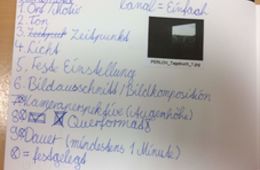 1. Ort/Motiv
Kanal = Einfach
2. Ton
3. Zeitpunkt Zeitpunkt
4. Licht
PERLON_Tagebuch_1.jpg
5. Feste Einstellung
6. Bildausschnitt/Bildkomposition
7. Kameraperspektive (Augenhöhe)
8. Querformat
9. Dauer (mindestens 1 Minute)
= festgelegt